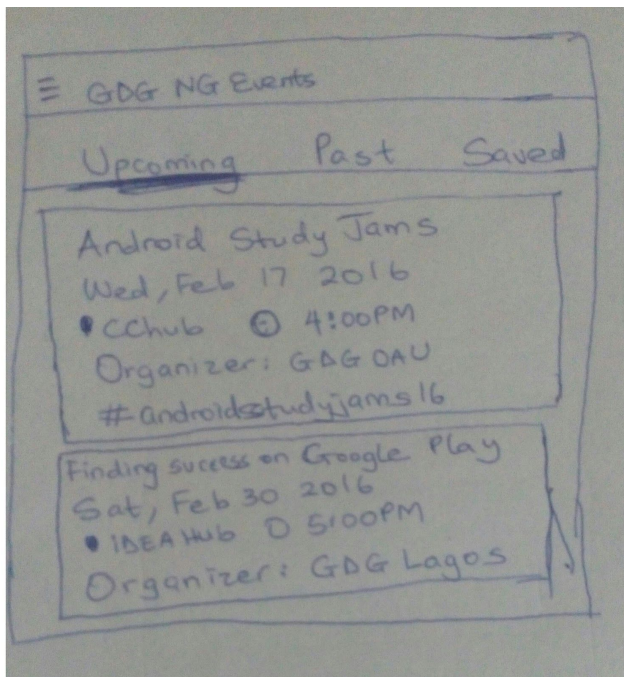 GDG NG Events
Upcoming Past Saved
Android Study Jams
Wed, Feb 17 2016
CChub 4:00PM
Organizer: GDG OAU
#androidstudyjams16
Finding success on Google Play
Sat, Feb 30 2016
IDEA Hub 5:00PM
Organizer: GDG Lagos